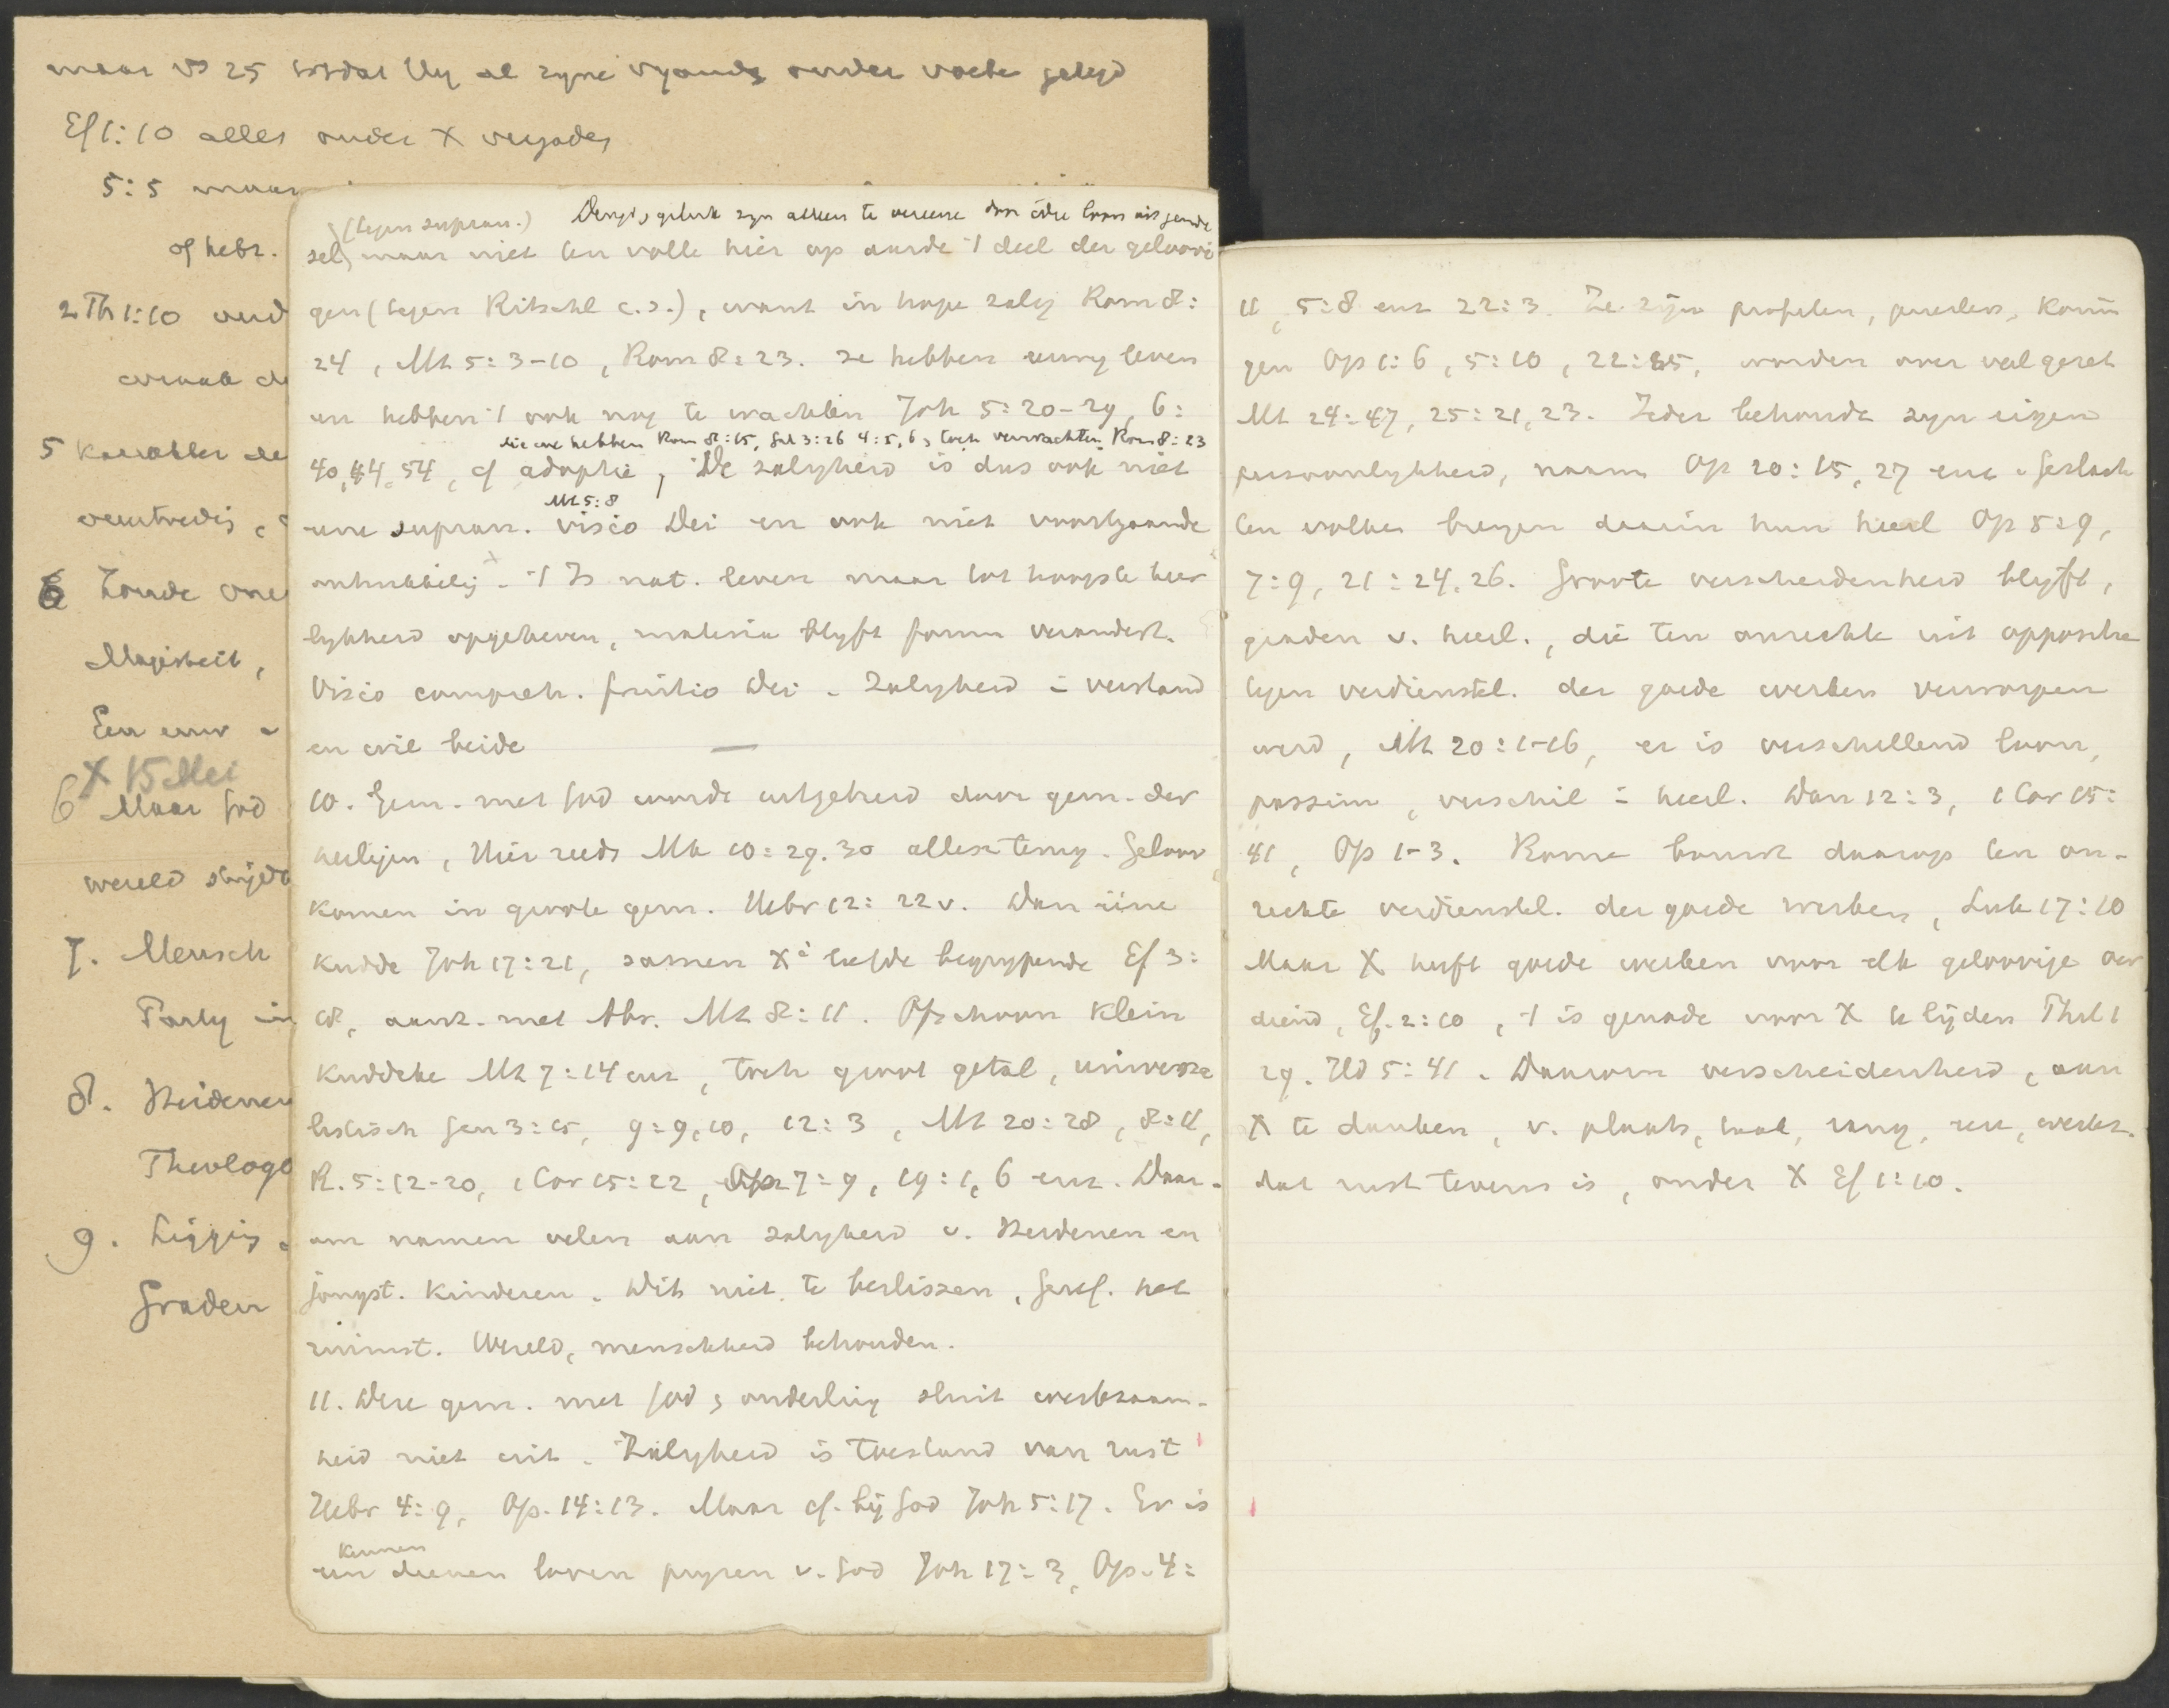 maar vs 25 totdat Hij al zyne vyands onder voete gelegd
Ef 1:10 alles onder X vergade
5:5 maar
of hebr.
2 Th 1:10
5 Karakter
6 Zonde
Majesteit,
Een
X 15 Mei
6 Maar God
wereld strijdt
7. Mensch
Party in
8. Heidenen
Theologo
9. Ligging
Graden
(tegen supran.) Deugd, geluk zyn alleen te
zel, maar niet ten volle hier op aarde 't deel der geloovi
gen (tegen Ritschl c.s.), want in hope zalig Rom 8:
24, Mt 5:3-10, Rom 8:23. ze hebben eeuwig leven
en hebben 't ook nog te wachten Joh 5:20-29, 6:
die we hebben Rom 8:15, Gal 3:26 4:5,6, toch verwachten Rom 8:23
40,44,54, cf adoptie, De zaligheid is dus ook niet
Mt 5:8
eene supran. visio Dei en ook niet voortgaande
't Is nat. leven maar tot hoogste heer
lykheid opgeheven, materia blyft forma verandert.
Visio compreh. fruitio Dei. Zalyheid = verstand
en wil beide
10. Gem. met God wordt uitgebreid door gem. der
heiligen, Hier reeds Mk 10:29.30 Geloov
komen in groote gem. Hebr 12:22v. Dan eene
kudde Joh 17:21, samen X' liefde begrypende Ef 3:
18, aanz. met Abr. Mt 8:11. Ofschoon klein
kuddeke Mt 7:14 enz, toch groot getal, universa
listisch Gen 3:15, 9:9,10, 12:3, Mt 20:28, 8:11,
R. 5:12-20, 1 Cor 15:22, Op 7:9, 19:1,6 enz. Daar-
om namen velen aan zalyheid v. Heidenen en
jongst. kinderen. Dit niet te beslissen, Geref. het
ruimst. Wereld, menschheid behouden.
11. Deze gem. met God & onderling sluit werkzaam-
heid niet uit. Zalyheid is toestand van rust
Hebr 4:9, Op. 14:13. Maar cf. bij God Joh 5:17. Er is
kennen
een dienen loven pryzen v. God Joh 17:3, Op. 4:
11, 5:8 enz 22:3. Ze zijn profeten, priesters, konin
gen Op 1:6, 5:10, 22:5, worden over veel gezet
Mt 24:47, 25:21,23. Ieder behoude zyn eigen
persoonlykheid, naam Op 20:15, 27 enz. Geslach
ten volken brengen daarin hun heerl Op 5:9,
7:9, 21:24.26. Groote verscheidenheid blyft,
graden v. heerl., die ten onrechte uit oppositie
tegen verdienstel. der goede werken verworpen
werd, Mt 20:1-16, er is verschillend loon,
passim, verschil = heerl. Dan 12:3, 1 Cor 15:
41, Op 1-3. Rome bouwt daarop ten on-
rechte verdienstel. der goede werken, Luk 17:10
Maar X heeft goede werken voor elk geloovige ver
diend, Ef. 2:10, 't is genade voor X te lijden Phil 1
29. Hd 5:41. Daarom verscheidenheid, aan
X te danken, v. plaats, taal, rang, werkz.
dat rust tevens is, onder X Ef 1:10.